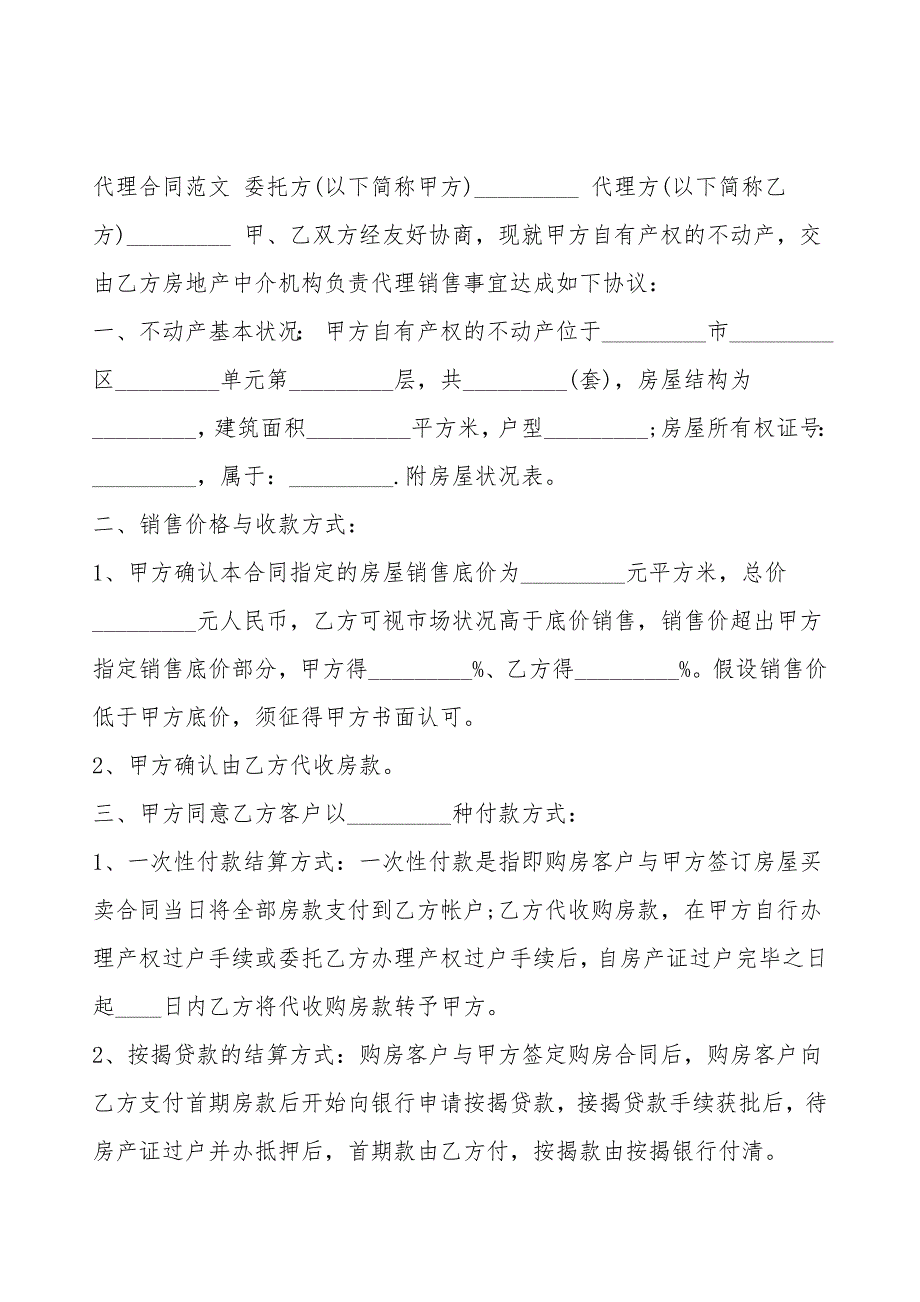 代理合同范文 委托方(以下简称甲方)_________ 代理方(以下简称乙
方)_________ 甲、乙双方经友好协商，现就甲方自有产权的不动产，交
由乙方房地产中介机构负责代理销售事宜达成如下协议：
一、不动产基本状况： 甲方自有产权的不动产位于_________市_________
区_________单元第_________层，共_________(套)，房屋结构为
_________，建筑面积_________平方米，户型_________;房屋所有权证号：
_________，属于：_________.附房屋状况表。
二、销售价格与收款方式：
1、甲方确认本合同指定的房屋销售底价为_________元平方米，总价
_________元人民币，乙方可视市场状况高于底价销售，销售价超出甲方
指定销售底价部分，甲方得_________%、乙方得_________%。假设销售价
低于甲方底价，须征得甲方书面认可。
2、甲方确认由乙方代收房款。
三、甲方同意乙方客户以_________种付款方式：
1、一次性付款结算方式：一次性付款是指即购房客户与甲方签订房屋买
卖合同当日将全部房款支付到乙方帐户;乙方代收购房款，在甲方自行办
理产权过户手续或委托乙方办理产权过户手续后，自房产证过户完毕之日
起____日内乙方将代收购房款转予甲方。
2、按揭贷款的结算方式：购房客户与甲方签定购房合同后，购房客户向
乙方支付首期房款后开始向银行申请按揭贷款，接揭贷款手续获批后，待
房产证过户并办抵押后，首期款由乙方付，按揭款由按揭银行付清。